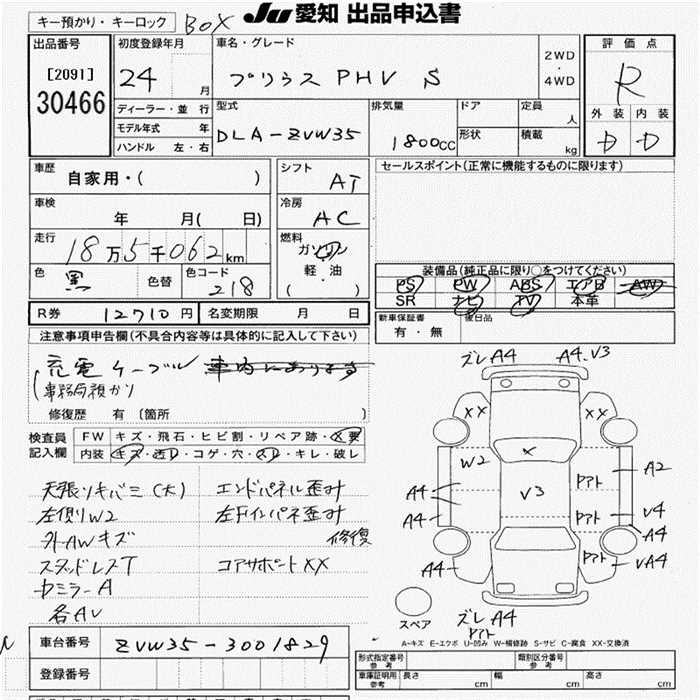 キー預かり・キーロック BOX
JU 愛知 出品申込書
出品番号
[2091]
30466
初度登録年月
24 月
車名・グレード
プリウス PHV S
2WD
・
4WD
評価点
R
外装 内装
D D
ディーラー・並行
モデル年式 年
ハンドル 左・右
型式
DLA-ZVW35
排気量
1800CC
ドア
形状
定員 人
積載 kg
車歴
自家用・( )
車検
年 月( 日)
走行
18万5千062km
色
黒
色替
色コード
218
シフト
AT
冷房
AC
燃料
ガソリン
軽・油
( ・ )
セールスポイント(正常に機能するものに限ります)
装備品(純正品に限り○をつけてください)
PS PW ABS エアB AW
SR ナビ TV 本革
新車保証書
有・無
後日品
R券 12710円
名変期限 月 日
注意事項申告欄(不具合内容等は具体的に記入して下さい)
充電ケーブル 車内にあります
(事務局預かり
修復歴 有 (箇所 )
検査員
記入欄
FW キズ・飛石・ヒビ割・リペア跡・X要
内装 キズ・汚レ・コゲ・穴・スレ・キレ・破レ
天張ツキバミ(大)
左側リW2
外AWキズ
スタッドレスT
カミラーA
各AV
エンドパネル歪み
左Fインパネ歪み
修復
コアサポートXX
ズレA4 A4.V3
XX XX
X
W2
V3
アト
A2
A4
A4
アト
V4
A4
アト
VA4
A4
スペア
ズレA4
アト
A-キズ E-エクボ U-凹み W-補修跡 S-サビ C-腐食 XX-交換済
車台番号 ZVW35-3001829
登録番号
形式指定番号
参考
類別区分番号
参考
車庫証明用
参考
長さ cm
幅 cm
高さ cm